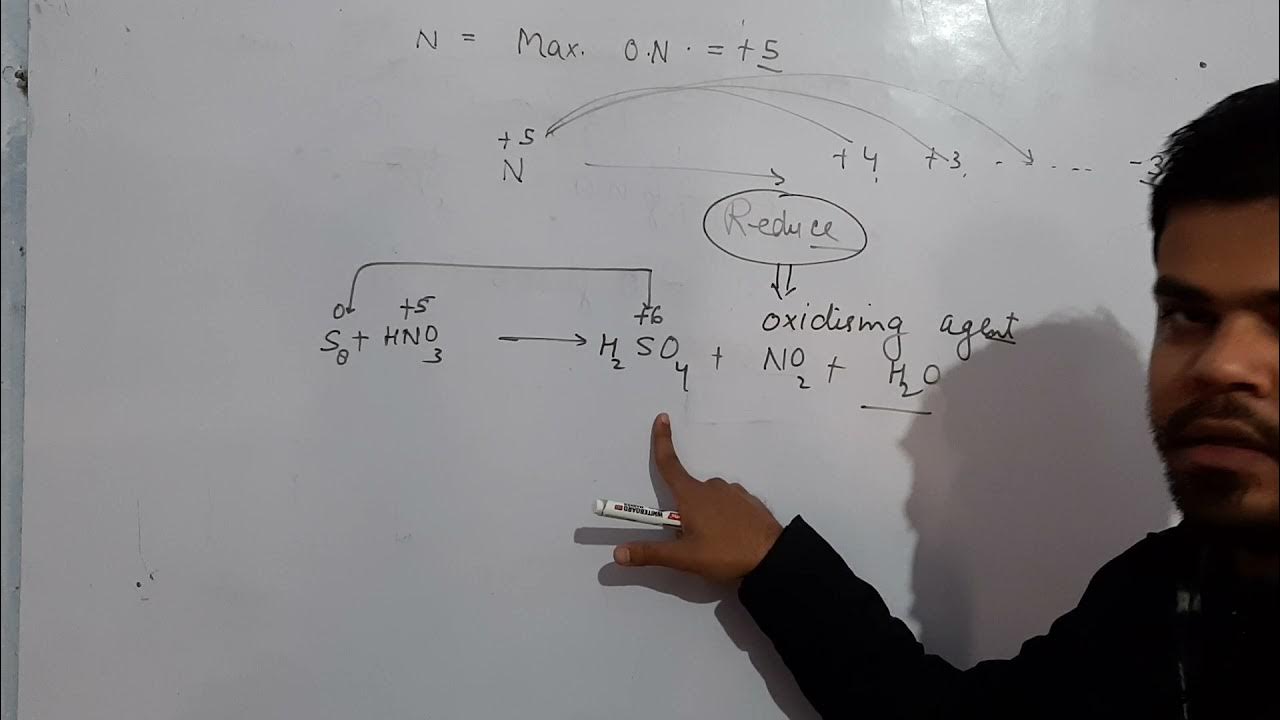 N = Max. O.N. = +5
+5
N → +4, +3, - .... -3
Reduce
oxidising agent
0 +5 +6
S₈ + HNO₃ → H₂SO₄ + NO₂ + H₂O
WHITEBOARD